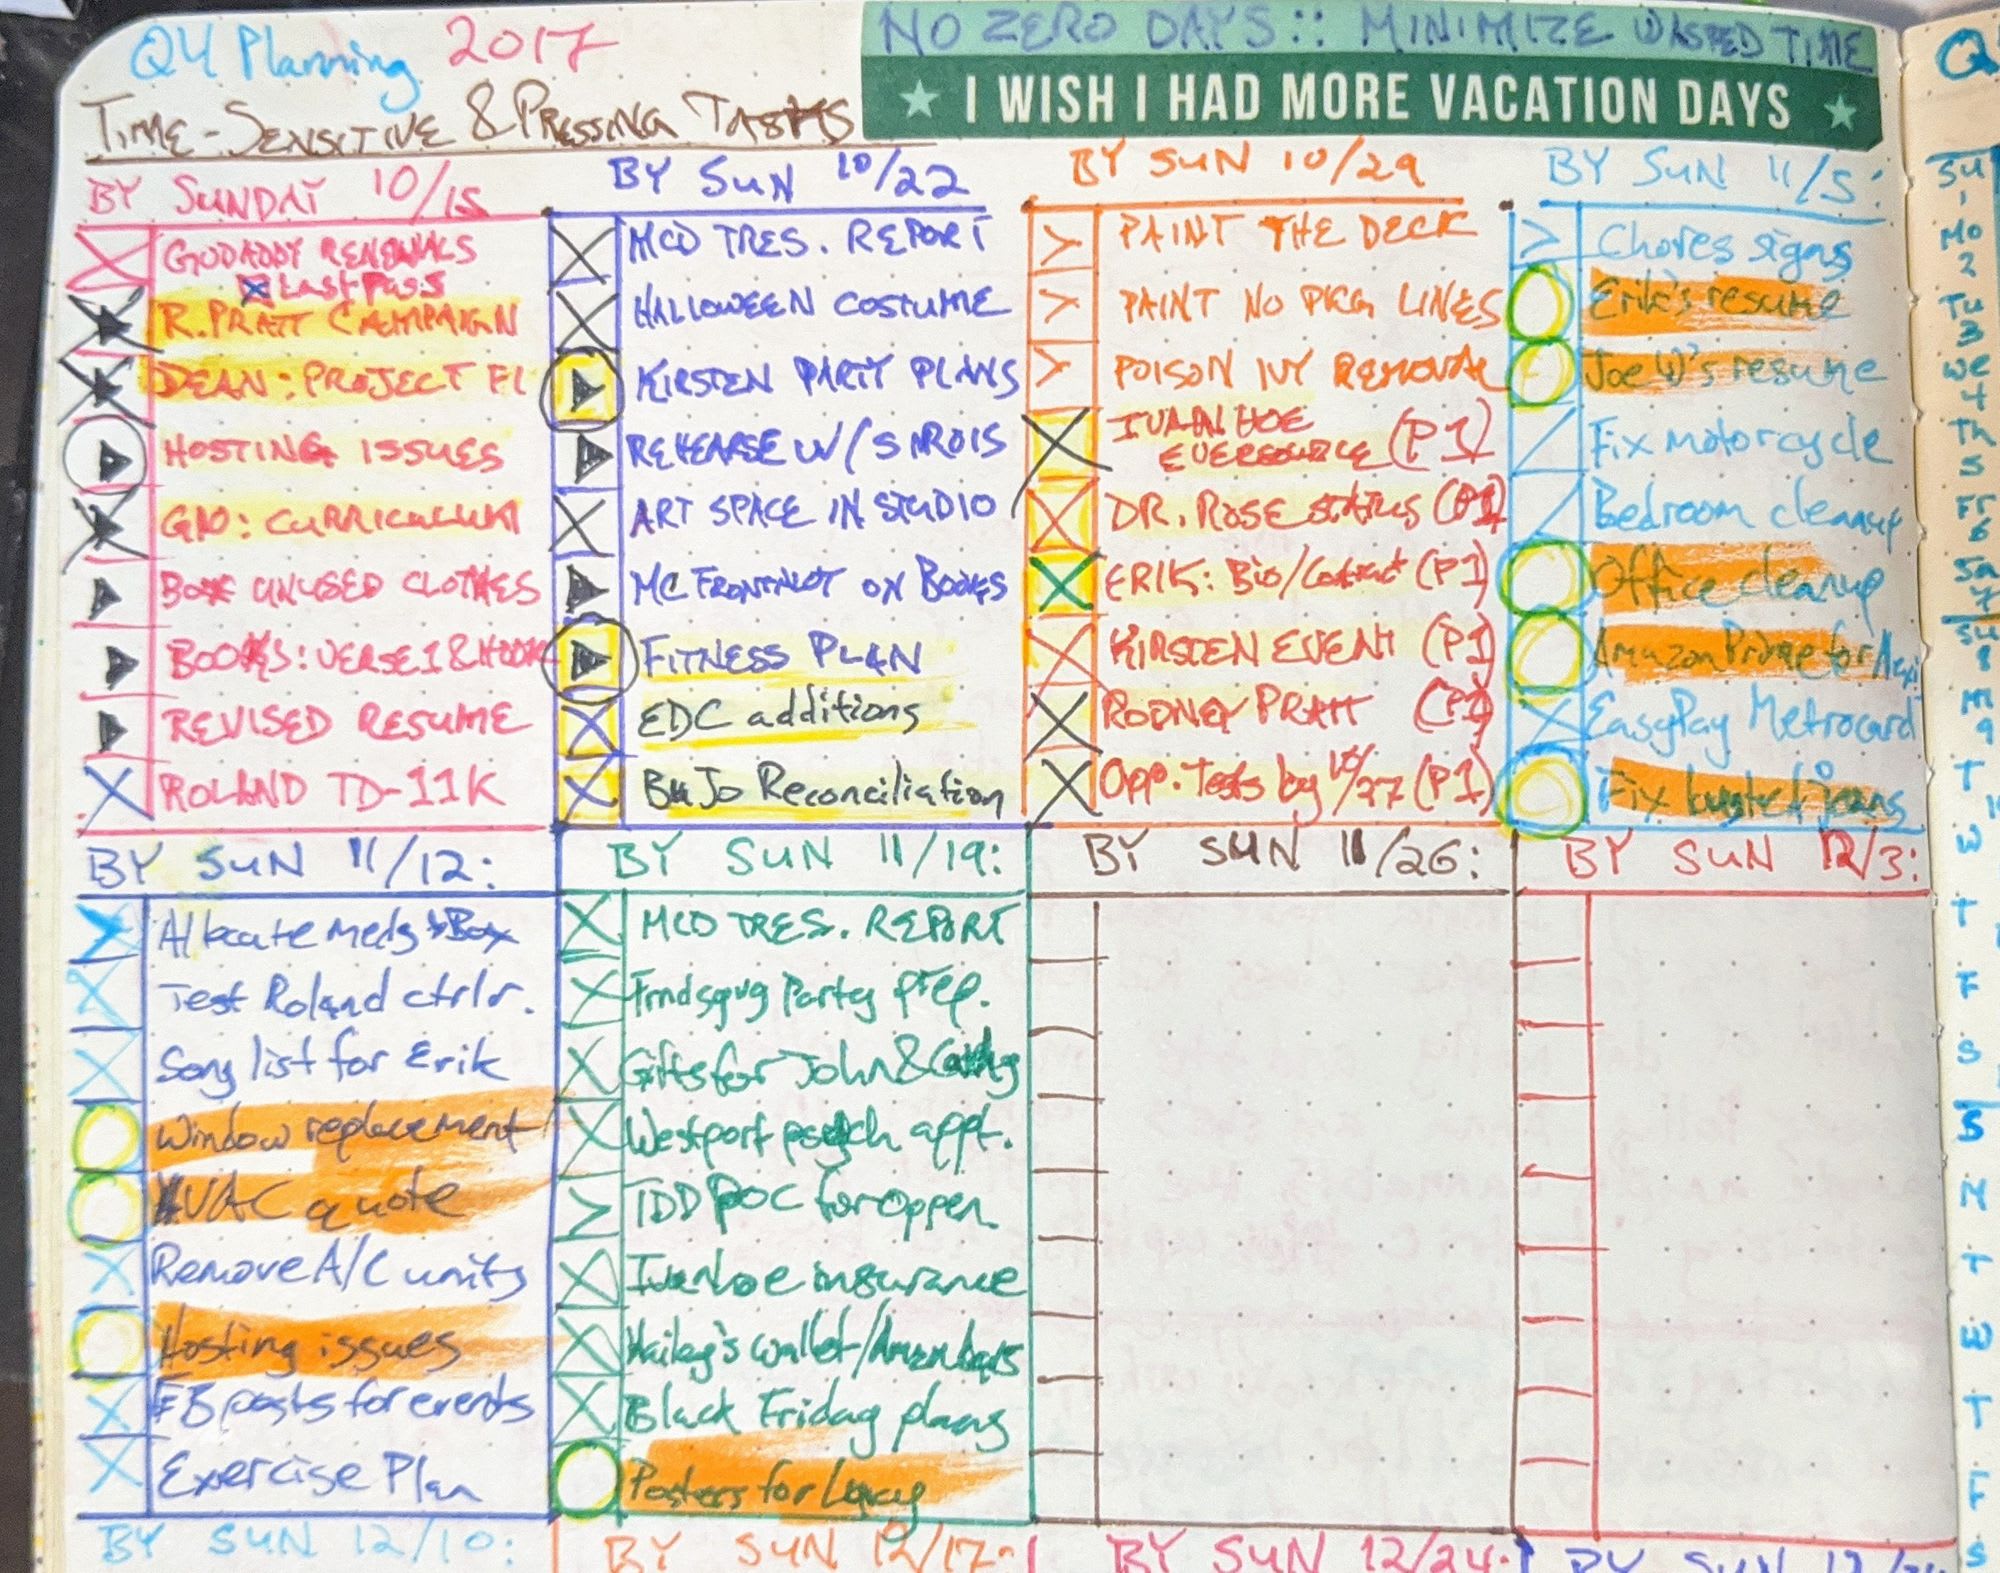 Q4 Planning 2017
NO ZERO DAYS :: MINIMIZE WASTED TIME
★ I WISH I HAD MORE VACATION DAYS ★
TIME-SENSITIVE & PRESSING TASKS
BY SUNDAY 10/15
GODADDY RENEWALS
LastPass
R. PRATT CAMPAIGN
DEAN: PROJECT FI
HOSTING ISSUES
GIO: CURRICULUM
BOX UNUSED CLOTHES
BOOKS: VERSE 1 & HOOK
REVISED RESUME
ROLAND TD-11K
BY SUN 10/22
MCD TRES. REPORT
HALLOWEEN COSTUME
KIRSTEN PARTY PLANS
REHEARSE W/ SIROIS
ART SPACE IN STUDIO
MC FRONTALOT ON BOOKS
FITNESS PLAN
EDC additions
BuJo Reconciliation
BY SUN 10/29
PAINT THE DECK
PAINT NO PKG LINES
POISON IVY REMOVAL
IVANHOE
EVERSOURCE (P1)
DR. ROSE STATUS (P1)
ERIK: Bio/Contract (P1)
KIRSTEN EVENT (P1)
RODNEY PRATT (P1)
Opp. Tests by 10/27 (P1)
BY SUN 11/5:
Chores signs
Erik's resume
Joe W's resume
Fix motorcycle
Bedroom cleanup
Office cleanup
Amazon Prime for
EasyPay Metrocard
Fix busted jeans
BY SUN 11/12:
Allocate meds + Box
Test Roland ctrlr.
Song list for Erik
Window replacement
HVAC quote
Remove A/C units
Hosting issues
FB posts for events
Exercise Plan
BY SUN 11/19:
MCD TRES. REPORT
Frndsgvg Party prep.
Gifts for John & Cathy
Westport psych appt.
TDD POC for Oppen.
Ivanhoe insurance
Hailey's wallet/
Black Friday plans
Posters for
BY SUN 11/26:
BY SUN 12/3:
BY SUN 12/10:
BY SUN 12/17:
BY SUN 12/24:
BY SUN
Q
Su
1
Mo
2
Tu
3
We
4
Th
5
Fr
6
Sa
7
Su
8
M
9
T
W
T
F
S
S
M
T
W
T
F
S